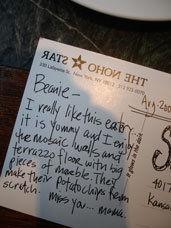 THE NOHO STAR
330 Lafayette St. New York, NY 10012 212-925-0070
Beanie -
I really like this eatery
it is yummy and I enjoy
the mosaic walls and
terrazzo floor with big
pieces of marble. They
make their potato chips from
scratch.
miss you... mama.
& glass in the dark
Aug. 200
S
4017
Kansa